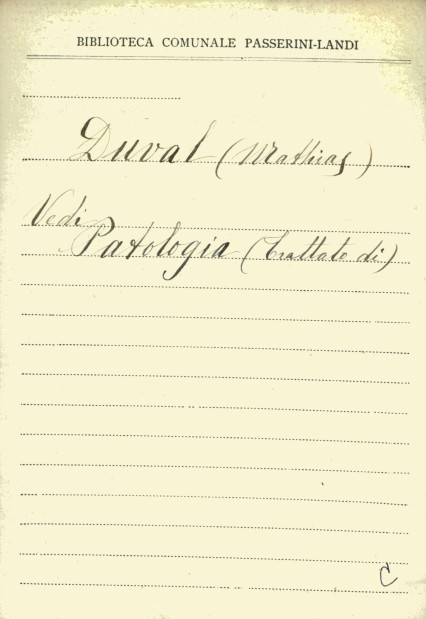 BIBLIOTECA COMUNALE PASSERINI-LANDI
Duval (Mathias)
Vedi
Patologia (trattato di)
C